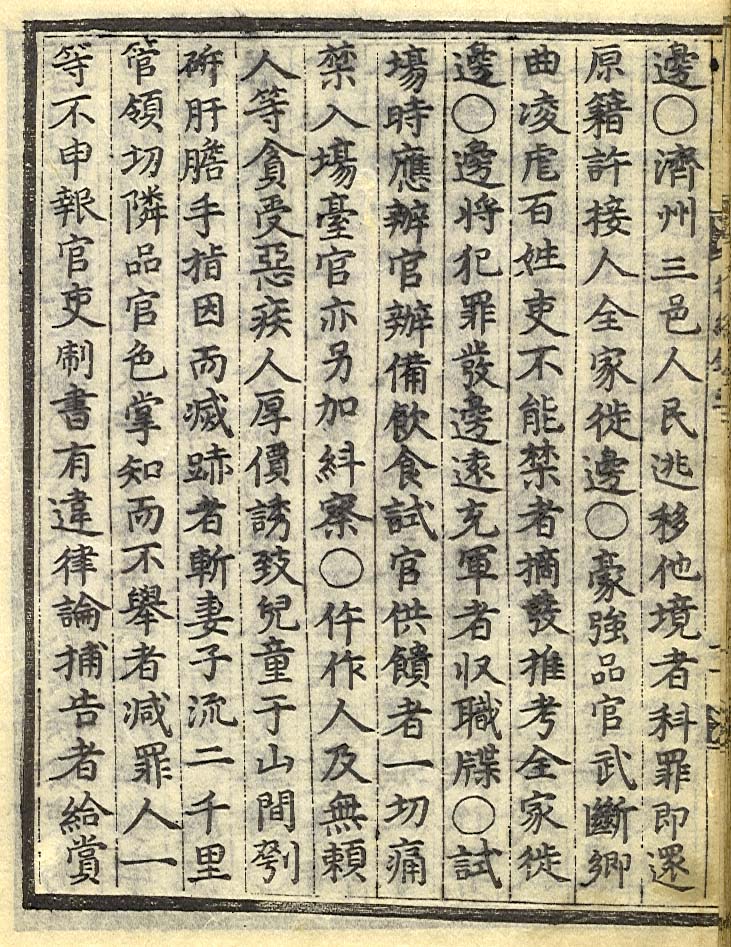 邊○濟州三邑人民逃移他境者科罪即還
原籍許接人全家徙邊○豪強品官武斷鄉
曲凌虐百姓吏不能禁者摘發推考全家徙
邊○邊將犯罪發邊遠充軍者収職牒○試
場時應辦官辦備飲食試官供饋者一切痛
禁入場臺官亦另加糾察○仵作人及無賴
人等貪受惡疾人厚價誘致兒童于山間刳
斫肝膽手指因而滅跡者斬妻子流二千里
管領切隣品官色掌知而不舉者减罪人一
等不申報官吏制書有違律論捕告者給賞